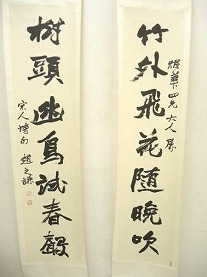 竹外飛花隨晚吹
四兄大人屬
樹頭幽鳥試春聲
宋人詩句 趙之謙